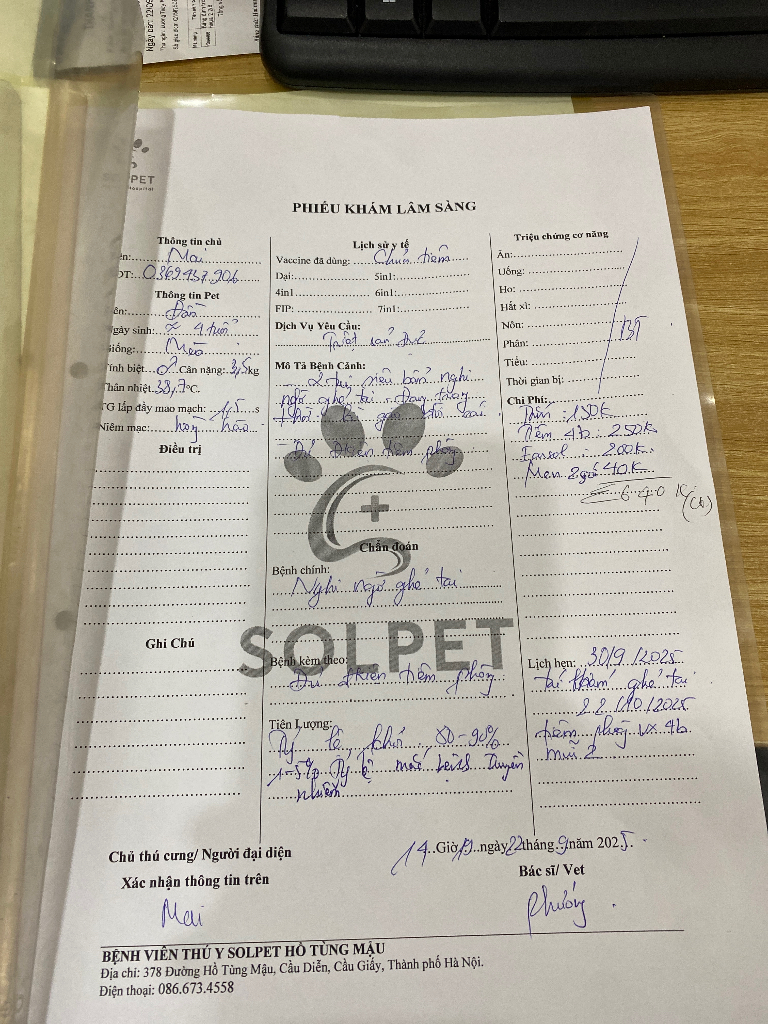 PET
PHIẾU KHÁM LÂM SÀNG
Thông tin chủ
Mai
0369.457.906
Thông tin Pet
Ngày sinh: ≈ 4 tuổi
Giống: Mèo
Tính biệt ♂ Cân nặng: 3,5kg
Thân nhiệt 38,7°C.
TG lấp đầy mao mạch: s
Niêm mạc: hồng hào
Điều trị
Ghi Chú
Lịch sử y tế
Vaccine đã dùng: Chưa tiêm
Dại: 5in1:
4in1 6in1:
FIP: 7in1:
Dịch Vụ Yêu Cầu:
Mô Tả Bệnh Cảnh:
- 2 tai siêu bẩn nghi
ngờ ghẻ tai
- Đủ điều kiện tiêm phòng
Chẩn đoán
Bệnh chính:
Nghi ngờ ghẻ tai
SOLPET
Bệnh kèm theo:
Đủ điều kiện tiêm phòng
Tiên Lượng:
Tỷ lệ khỏi 80-90%
1-5% Tỷ lệ mắc truyền
nhiễm
Triệu chứng cơ năng
Ăn:
Uống:
Ho:
Hắt xì:
Nôn:
Phân: BT
Tiểu:
Thời gian bị:
Chi Phí:
150K
Tiêm 4b: 250K
200K
Men 2 gói 40K
640K
(Ck)
Lịch hẹn: 30/9/2025
tái khám ghẻ tai
22/10/2025
tiêm phòng vx 4b
mũi 2
Chủ thú cưng/ Người đại diện
Xác nhận thông tin trên
Mai
14 Giờ ngày 22 tháng 9 năm 2025.
Bác sĩ/ Vet
Phương
BỆNH VIỆN THÚ Y SOLPET HỒ TÙNG MẬU
Địa chỉ: 378 Đường Hồ Tùng Mậu, Cầu Diễn, Cầu Giấy, Thành phố Hà Nội.
Điện thoại: 086.673.4558